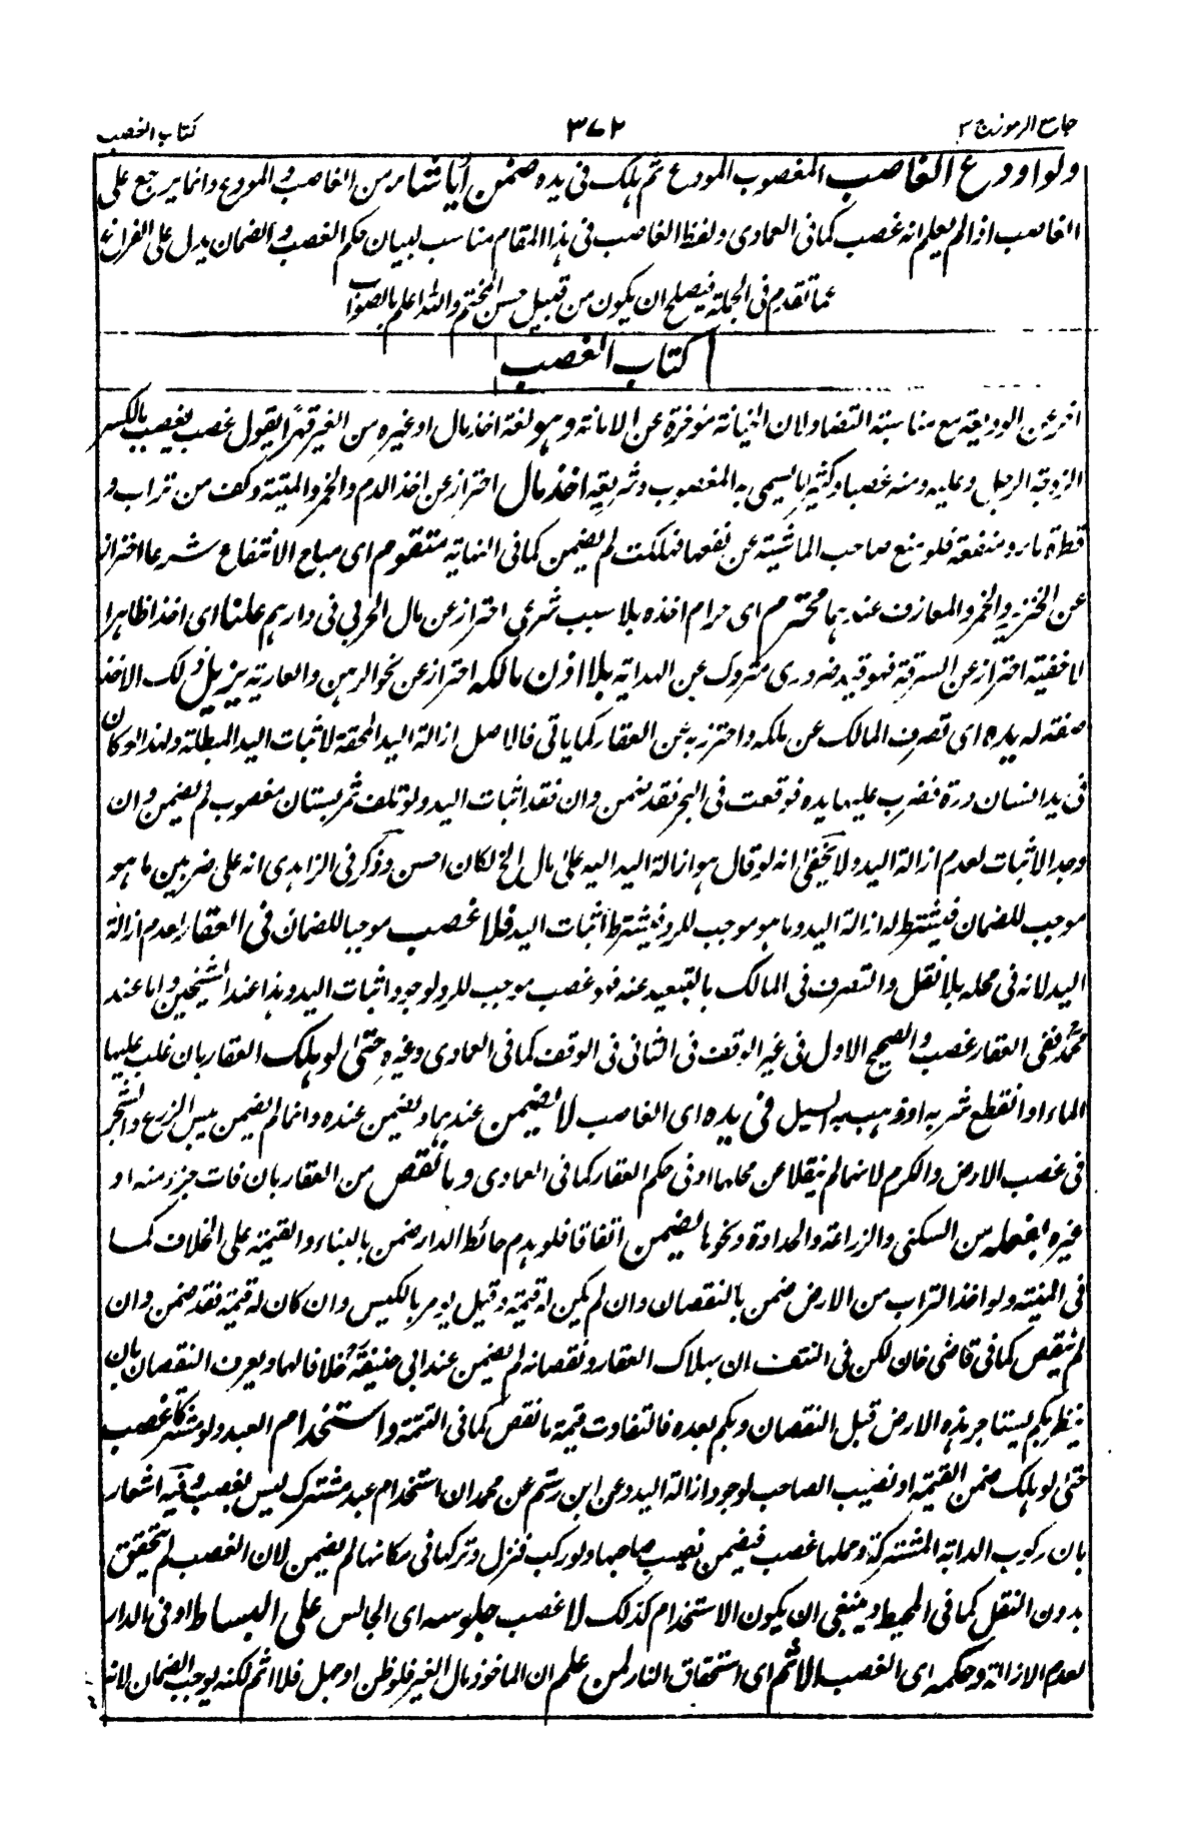 جامع الرموز ج ٣
٣٧٢
كتاب الغصب
ولو اودع الغاصب المغصوب المودع ثم هلك فى يده ضمن أيا شاء من الغاصب والمودع وانما يرجع على
الغاصب اذا لم يعلم انه غصب كما فى العمادى ولفظ الغاصب فى هذا المقام مناسب لبيان حكم الغصب والضمان يدل على الفراغ
عما تقدم فى الجملة فيصلح ان يكون من قبيل حسن المختتم والله اعلم بالصواب
كتاب الغصب
اخر عن الوديعة مع مناسبة التضاد لان الخيانة مؤخرة عن الامانة وهو لغة اخذ مال او غيره من الغير قهرا يقول غصب يغصب بالكسر
الزوجة الرجل وعليه ومنه غصبا وكثيرا يسمى به المغصوب وشريعة اخذ مال احتراز عن اخذ الدم والخمر والميتة وكف من تراب و
قطرة ماء ومنفعة فلو منع صاحب الماشية عن نفعها فهلكت لم يضمن كما فى النهاية متقوم اى مباح الانتفاع شرعا احتراز
عن الخنزير والخمر والمعازف عندهما محترم اى حرام اخذه بلا سبب شرعى احتراز عن مال الحربى فى دارهم علنا اى اخذا ظاهرا
لا خفية احتراز عن السرقة فهو قيد ضرورى متروك عن الهداية بلا اذن مالكه احتراز عن نحو الرهن والعارية يزيل ذلك الاخذ
صفة له يده اى تصرف المالك عن ملكه واحترز به عن العقار كما ياتى فالاصل ازالة اليد المحقة لا ثبات اليد المبطلة ولهذا لو كان
فى يد انسان درة فضرب عليها يده فوقعت فى البحر فقد ضمن وان فقد اثبات اليد ولو تلف ثمر بستان مغصوب لم يضمن وان
وجد الاثبات لعدم ازالة اليد ولا يخفى انه لو قال هو ازالة اليد اليه على مال الخ لكان احسن وذكر فى الزاهدى انه على ضربين ما هو
موجب للضمان فيشترط له ازالة اليد وما هو موجب للرد فيشترط اثبات اليد فلا غصب موجبا للضمان فى العقار لعدم ازالة
اليد لانه فى محله بلا نقل والتصرف فى المالك بالتبعيد عنه فهو غصب موجب للرد لوجود اثبات اليد وهذا عند الشيخين واما عند
محمد ففى العقار غصب والصحيح الاول فى غير الوقف فى الثانى فى الوقف كما فى العمادى وغيره حتى لو هلك العقار بان غلب عليها
الماء او انقطع شربه او ذهب به السيل فى يده اى الغاصب لا يضمن عندهما ويضمن عنده وانما لم يضمن يبس الزرع والشجر
فى غصب الارض والكرم لانهما لم ينقلا عن محلهما او فى حكم العقار كما فى العمادى وما نقص من العقار بان فات جزء منه او
غيره بفعله من السكنى والزراعة والحدادة ونحوها يضمن اتفاقا فلو هدم حائط الدار ضمن بالبناء والقيمة على الخلاف كما
فى المنية ولو اخذ التراب من الارض ضمن بالنقصان وان لم يكن له قيمة وقيل يومر بالكبس وان كان له قيمة فقد ضمن وان
لم ينقص كما فى قاضى خان لكن فى النتف ان بهلاك العقار ونقصانه لم يضمن عند ابى حنيفة خلافا لهما ويعرف النقصان بان
ينظر بكم يستاجر هذه الارض قبل النقصان وبكم بعده فالتفاوت قيمة ما نقص كما فى التتمة واستخدام العبد ولو مشتركا غصب
حتى لو هلك ضمن القيمة او نصيب الصاحب لوجود ازالة اليد وعن ابن رستم عن محمد ان استخدام عبد مشترك ليس بغصب وفيه اشعار
بان ركوب الدابة المشتركة وحملها غصب فيضمن نصيب صاحبها ولو ركب فنزل وتركها فى مكانها لم يضمن لان الغصب لم يتحقق
بدون النقل كما فى المحيط وينبغى ان يكون الاستخدام كذلك لا غصب جلوسه اى الجالس على البساط او فى الدار
لعدم الازالة وحكمه اى الغصب الاثم اى استحقاق النار لمن علم ان الماخوذ مال الغير فلو ظن او جهل فلا اثم لكنه يوجب الضمان لانه